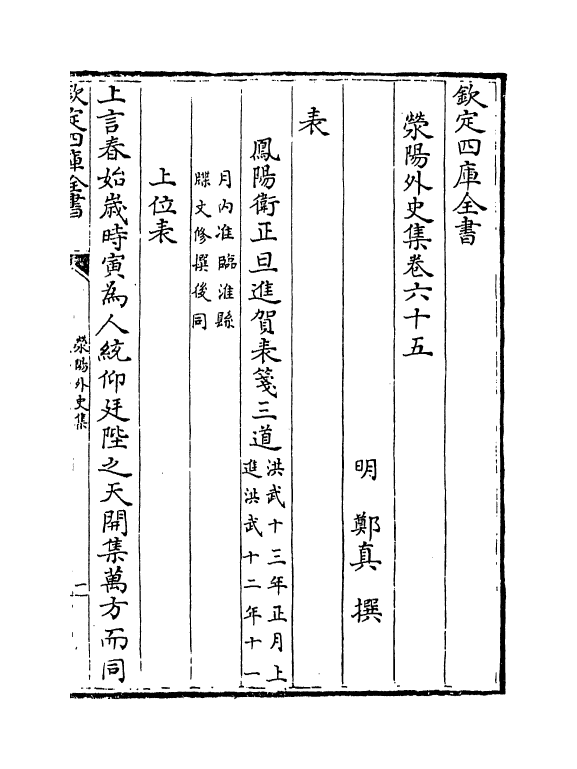 欽定四庫全書
滎陽外史集卷六十五
明 鄭真 撰
表
鳳陽衛正旦進賀表箋三道洪武十三年正月上
進洪武十二年十一
月内准臨淮縣
牒文修撰後同
上位表
上言春始歲時寅為人統仰廷陛之天開集萬方而同
欽定四庫全書
滎陽外史集